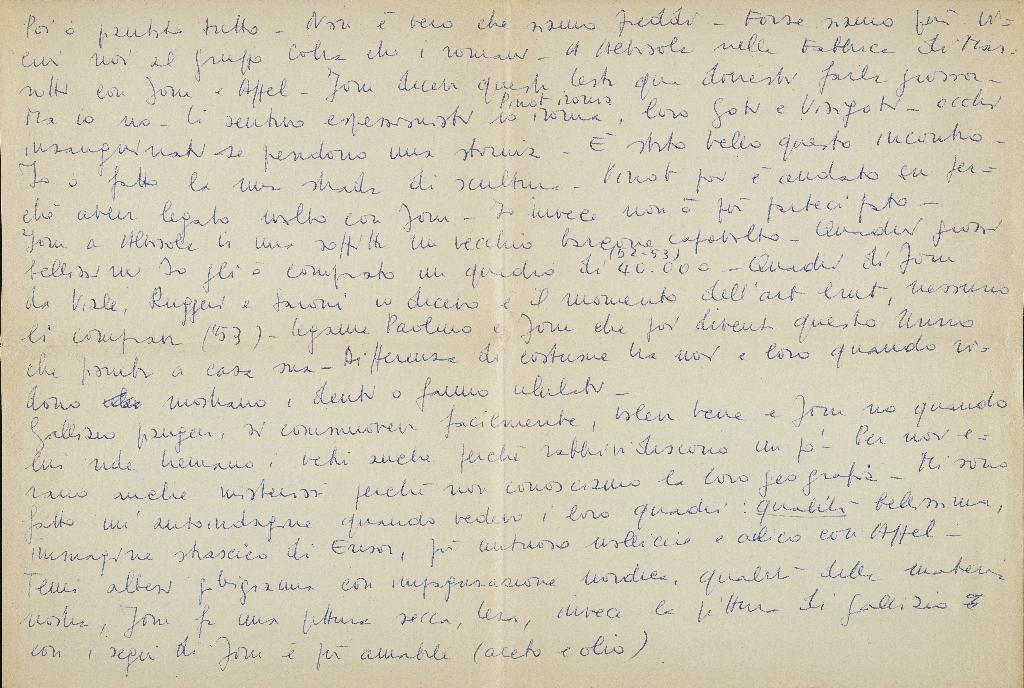 Poi è partito tutto - Non è vero che siamo freddi - Forse siamo più vi-
cini noi al gruppo cobra che i romani - A Albisola nella Fabbrica di Maz-
zotti con Jorn e Appel - Jorn diceva questi testi qua dovresti farla grossa -
Ma io no - li sentivo espressionisti io Pinot ironia ironia, loro Goti e Visigoti - occhi
insanguinati se perdono una storia - È stato bello questo incontro -
Io ò fatto la mia strada di scultura - Pinot poi è andato su per-
ché aveva legato molto con Jorn - Io invece non ò più partecipato -
Jorn a Albisola in una soffitta un vecchio barcone capovolto - Quadri grossi
bellissimi Io gli ò comprato un quadro di (52-53) 40.000 - Quadri di Jorn
da Viale, Ruggeri e Saroni io dicevo è il momento dell'art brut, nessuno
li comprava ('53) - legame Paolino e Jorn che poi diventa questo Unno
che piomba a casa sua - Differenza di costume tra noi e loro quando ri-
dono mostrano i denti o fanno ululati -
Gallizio piangeva, si commuoveva facilmente, voleva bene e Jorn no quando
lui ride tremano i vetri anche perché rabbrividiscono un pò - Per noi e-
rano anche misteriosi perché non conosciamo la loro geografia - Mi sono
fatto un'autoindagine quando vedevo i loro quadri: qualità bellissima,
immagine strascico di Ensor, più untuoso e con Appel -
Temi albesi con impaginazione nordica, qualità della materia
nostra, Jorn fa una pittura secca, tesa, invece la pittura di Gallizio
con i segni di Jorn è più amabile (aceto e olio)